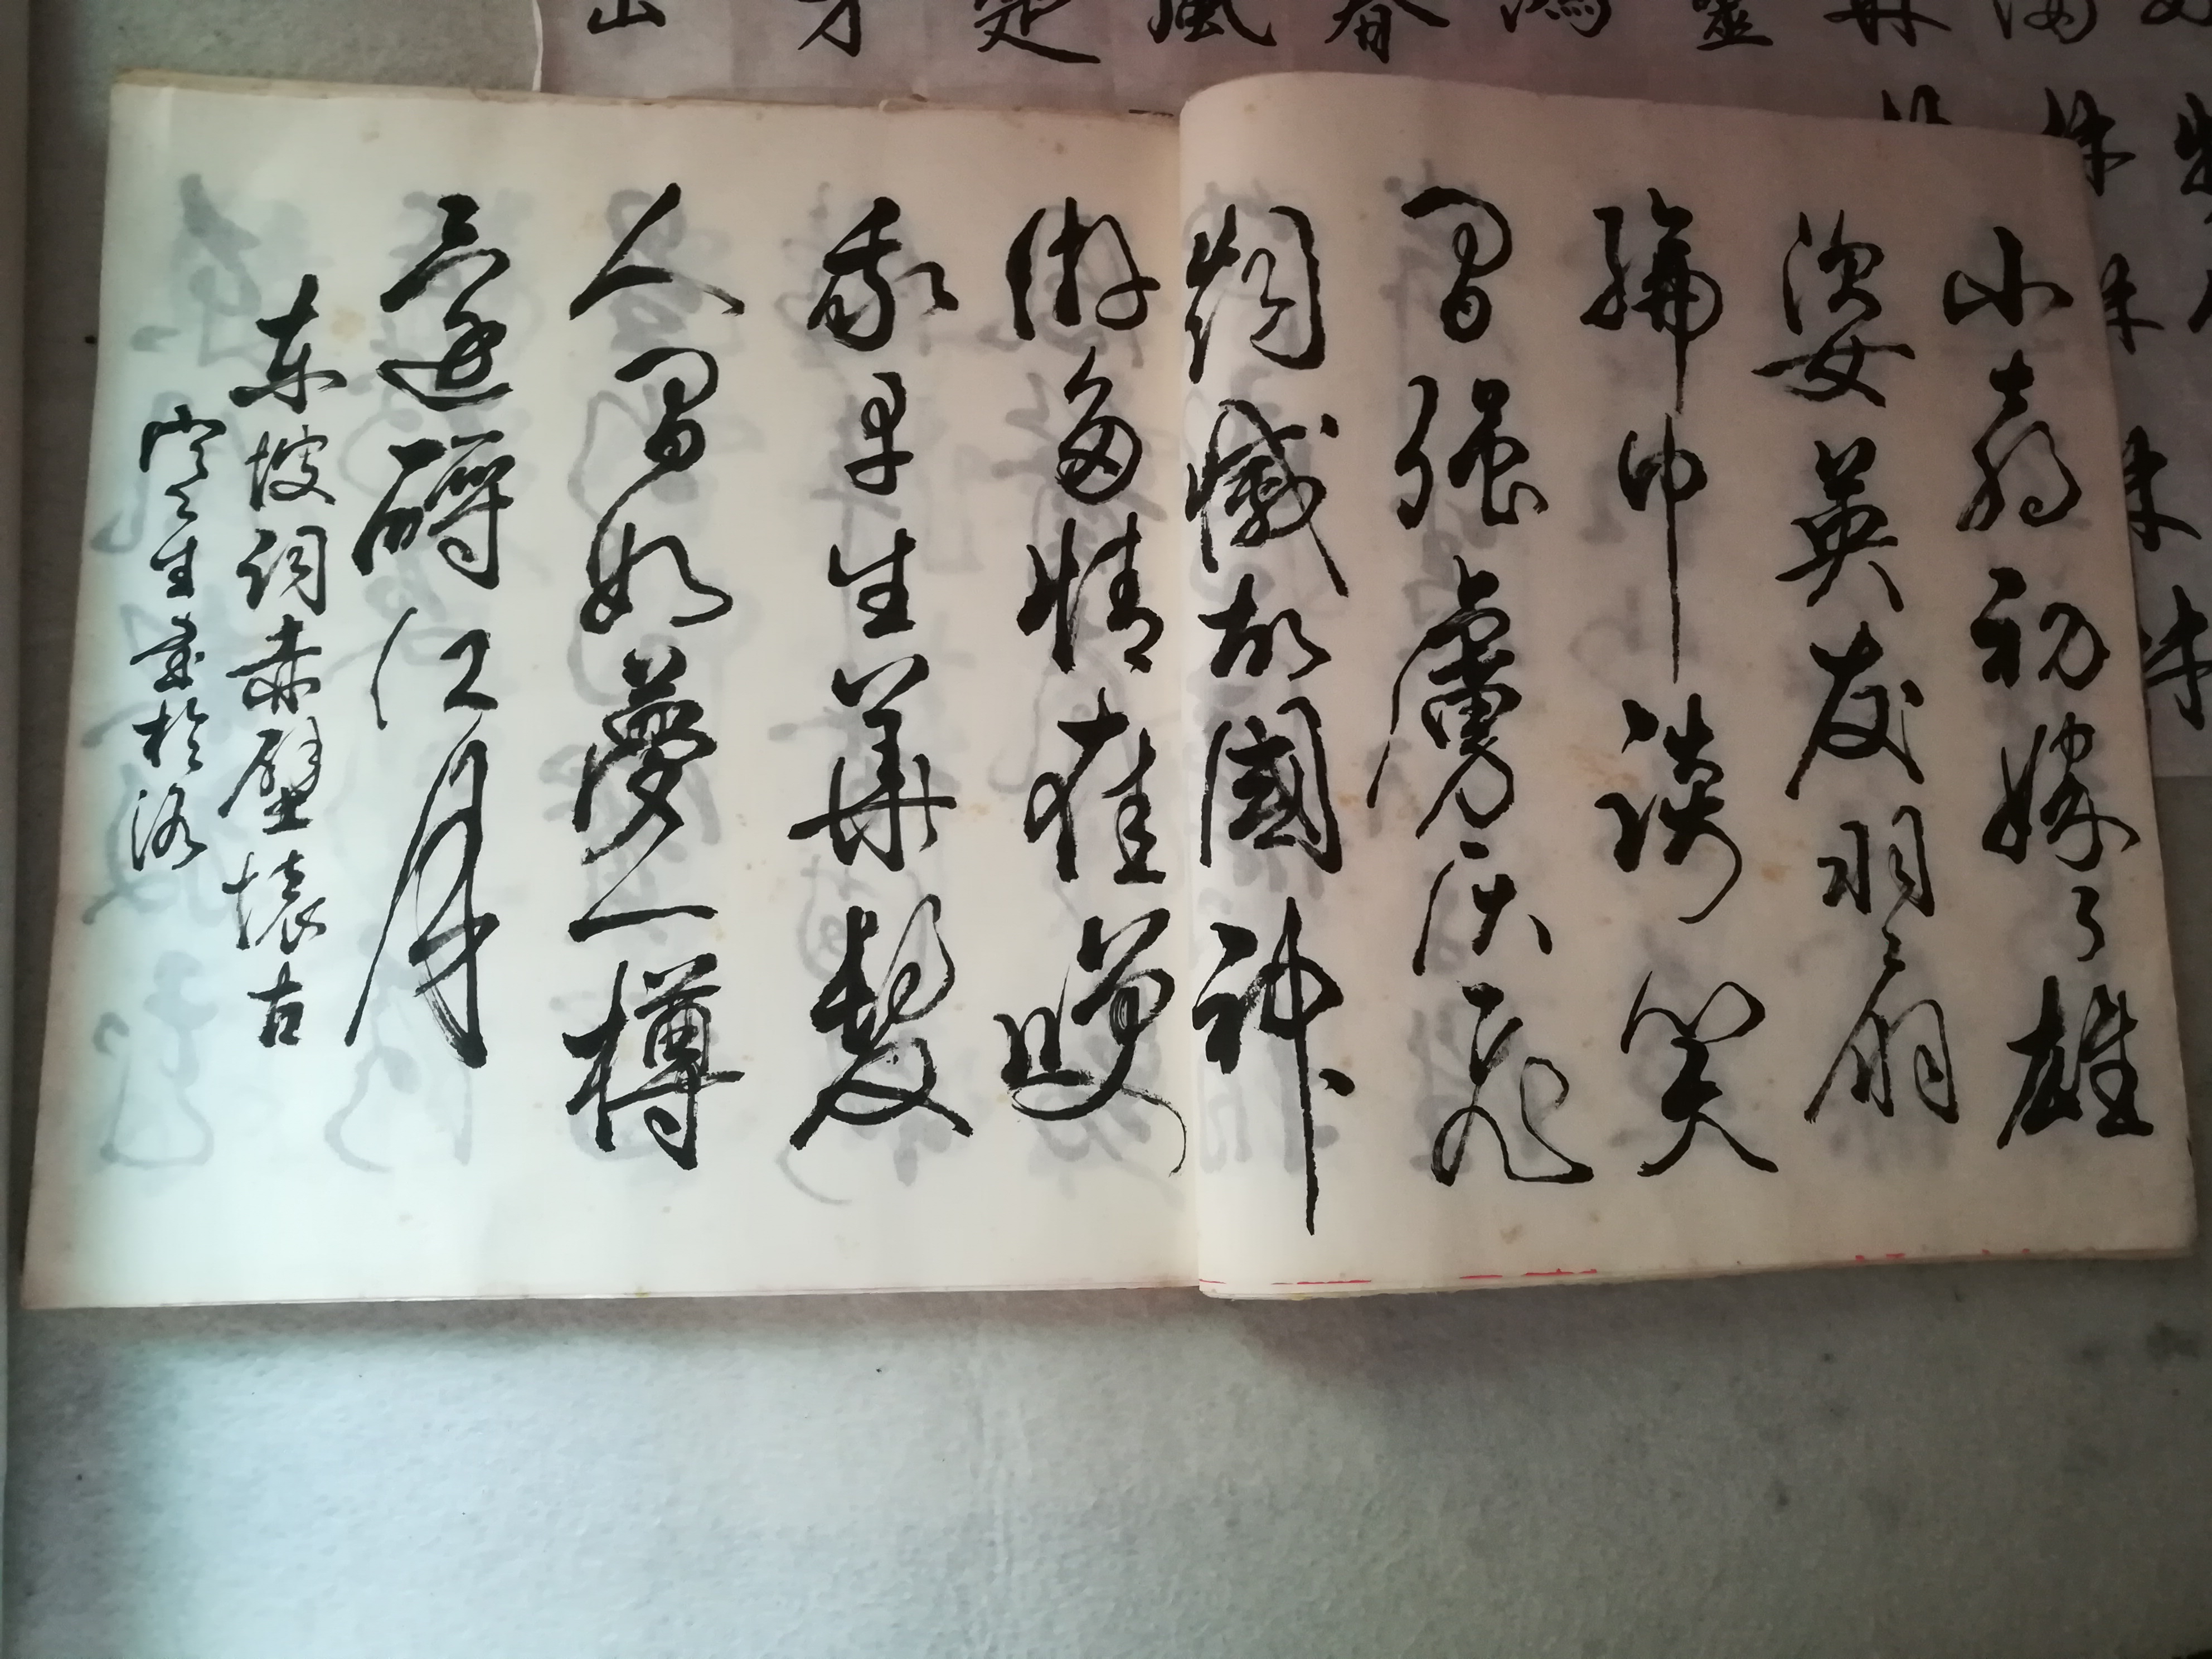 小喬初嫁了雄
姿英发羽扇
綸巾談笑
間强虜灰飛
烟滅故國神
游多情應
我早生華髮
人間如夢一樽
還酹江月
东坡词赤壁懷古
生書於洛